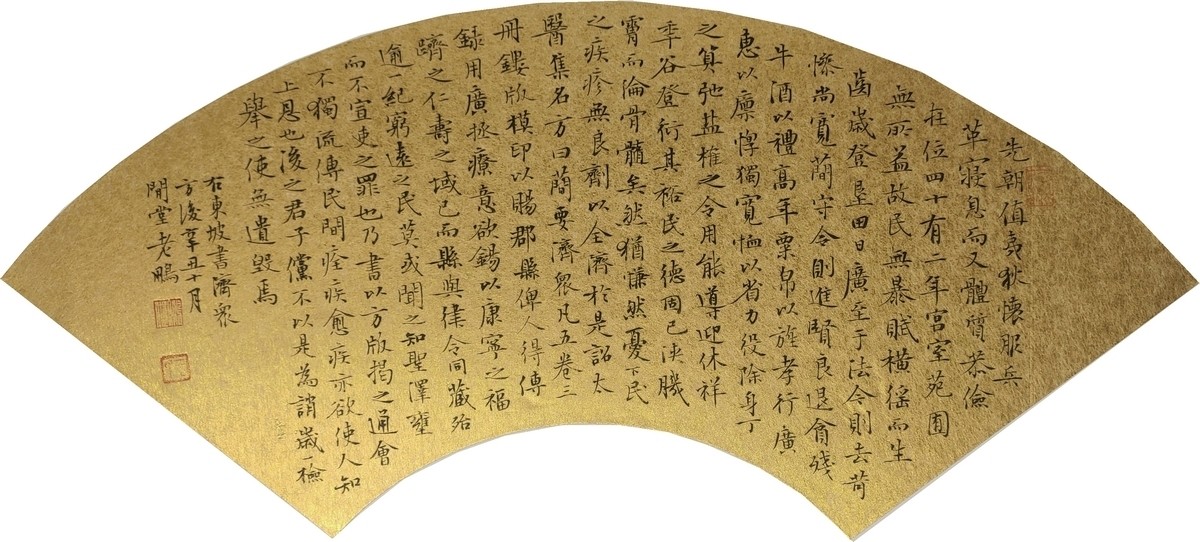 先朝值夷狄懷服兵
革寢息而又體質恭儉
在位四十有二年宮室苑囿
無所益故民無暴賦橫徭而生
齒歲登墾田日廣至于法令則去苛
慘尚寬簡守令則進賢良退貪殘
牛酒以禮高年粟帛以旌孝行廣
惠以廩惸獨寬恤以省力役除身丁
之筭弛盐榷之令用能導迎休祥
秊谷登衍其裕民之德固已浹肌
膚而倫骨髓矣然猶慊然憂下民
之疾疹無良劑以全濟於是詔太
醫集名方曰簡要濟眾凡五卷三
冊鏤版模印以賜郡縣俾人得傳
錄用廣拯療意欲錫以康寧之福
躋之仁壽之域已而縣與律令同藏殆
逾一紀窮遠之民莫或聞之知聖澤壅
而不宣吏之罪也乃書以方版揭之通會
不獨流傳民間痊疾愈疾亦欲使人知
上恩也後之君子儻不以是為誚歲一檢
舉之使無遺毀焉
右東坡書濟眾
方後辛丑十月
閒堂老鵬